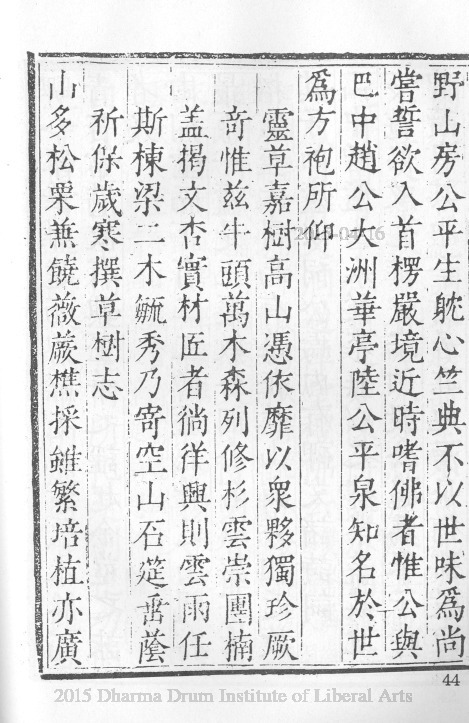 野山房公平生躭心竺典不以世味爲尚
嘗誓欲入首楞嚴境近時嗜佛者惟公與
巴中趙公大洲華亭陸公平泉知名於世
爲方袍所仰
靈草嘉樹高山憑依靡以衆夥獨珍厥
奇惟茲牛頭萬木森列修杉雲崇團楠
盖揭文杏實材匠者徜徉興則雲雨任
斯棟梁二木毓秀乃寄空山石莚畨蔭
祈保歲寒撰草樹志
山多松栗蕪饒薇蕨樵採雖繁培植亦廣
44
2015 Dharma Drum Institute of Liberal Arts